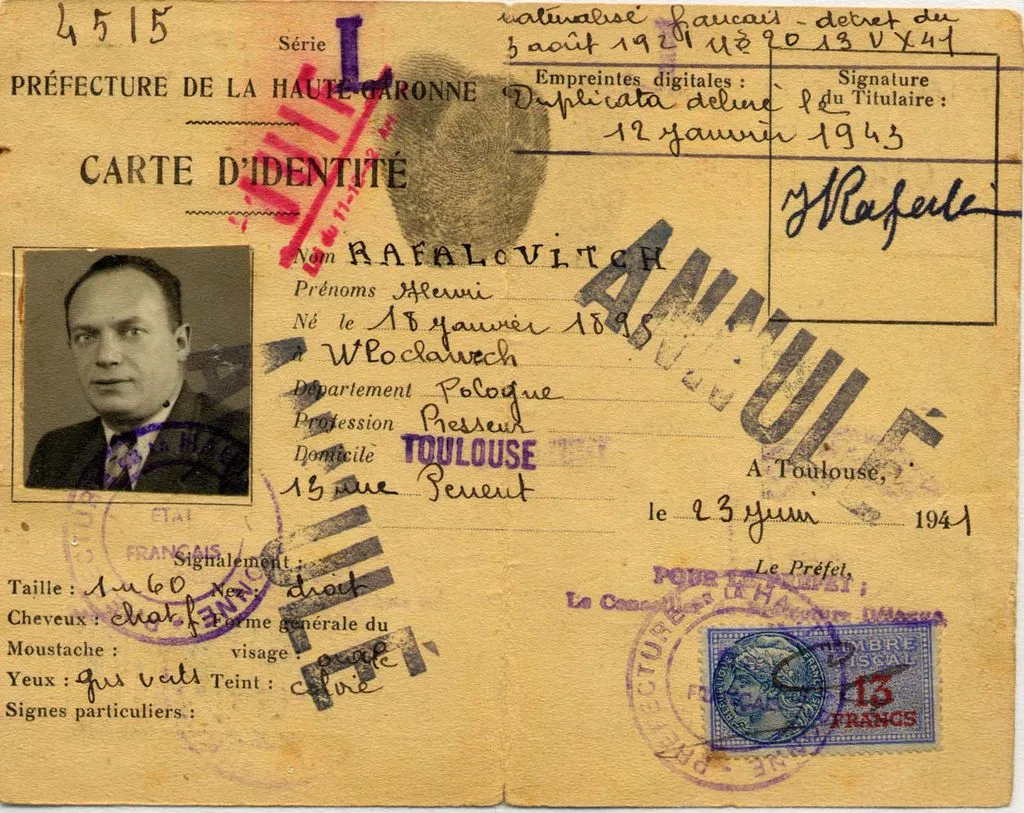 4515
Série L
PRÉFECTURE DE LA HAUTE-GARONNE
CARTE D'IDENTITÉ
JUIF
Loi du 11-12-42 Art.
naturalisé français - décret du
5 août 192
Empreintes digitales :
Duplicata délivré le
12 janvier 1943
Signature
du Titulaire :
Nom RAFALOVITCH
Prénoms Henri
Né le 18 janvier 189
à
Département Pologne
Profession Presseur
Domicile TOULOUSE
13 rue Perrent
ANNULÉ
ANNULÉ
A Toulouse,
le 23 juin 1941
Le Préfet,
POUR LE PRÉFET ;
Le Conseiller de Préfecture Délégué,
PRÉFECTURE DE LA HAUTE GARONNE
ETAT
FRANÇAIS
Signalement :
Taille : 1m60 Nez : droit
Cheveux : chat f Forme générale du
Moustache : visage : ovale
Yeux : gris verts Teint :
Signes particuliers :
TIMBRE
FISCAL
13
FRANCS